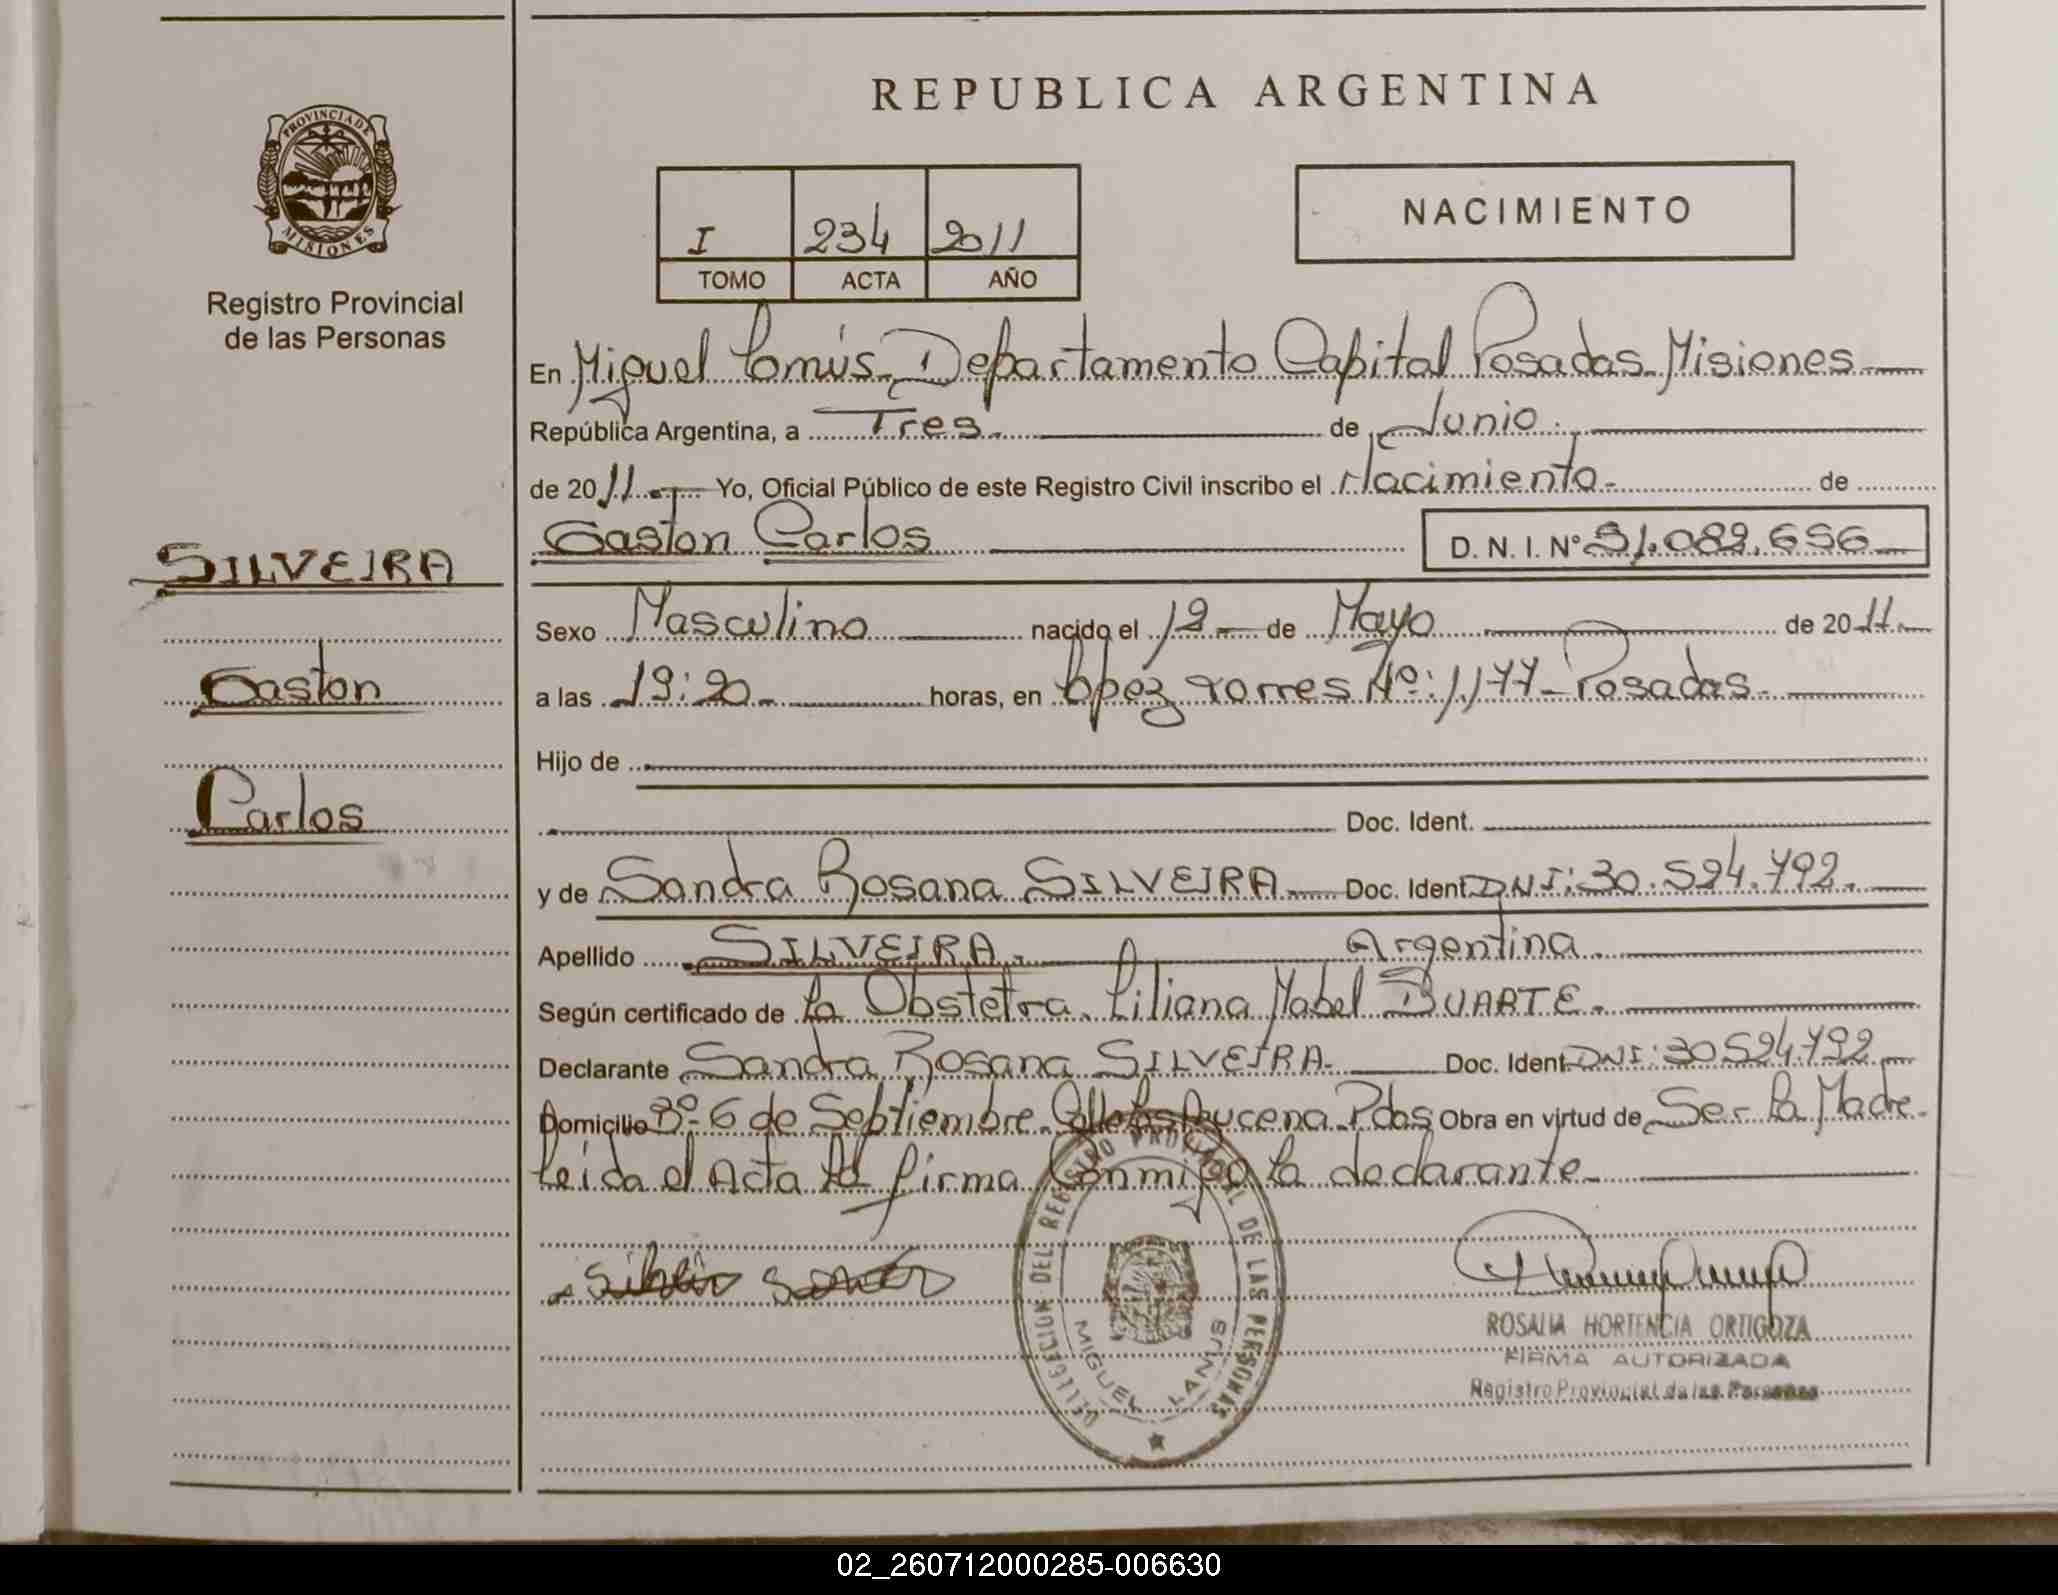 REPUBLICA ARGENTINA
PROVINCIA DE
MISIONES
Registro Provincial
de las Personas
I 234 2011
TOMO ACTA AÑO
NACIMIENTO
En Miguel Lanús Departamento Capital Posadas Misiones
República Argentina, a Tres de Junio
de 2011 Yo, Oficial Público de este Registro Civil inscribo el Nacimiento de
Gaston Carlos D. N. I. Nº 51.082.656
SILVEIRA
Gaston
Carlos
Sexo Masculino nacido el 12 de Mayo de 2011
a las 19:20 horas, en López Torres Nº: 1177 Posadas
Hijo de
Doc. Ident.
y de Sandra Rosana SILVEIRA Doc. Ident. DNI: 30.524.792
Apellido SILVEIRA Argentina
Según certificado de la Obstetra Liliana Mabel DUARTE
Declarante Sandra Rosana SILVEIRA Doc. Ident DNI: 30524.792
Domicilio Bº 6 de Septiembre Pdas Obra en virtud de Ser la Madre
Leida el Acta la firma Conmigo la declarante
DELEGACION DEL REGISTRO PROVINCIAL DE LAS PERSONAS
MIGUEL LANUS
ROSALIA HORTENCIA ORTIGOZA
FIRMA AUTORIZADA
Registro Provincial de las Personas
02_260712000285-006630